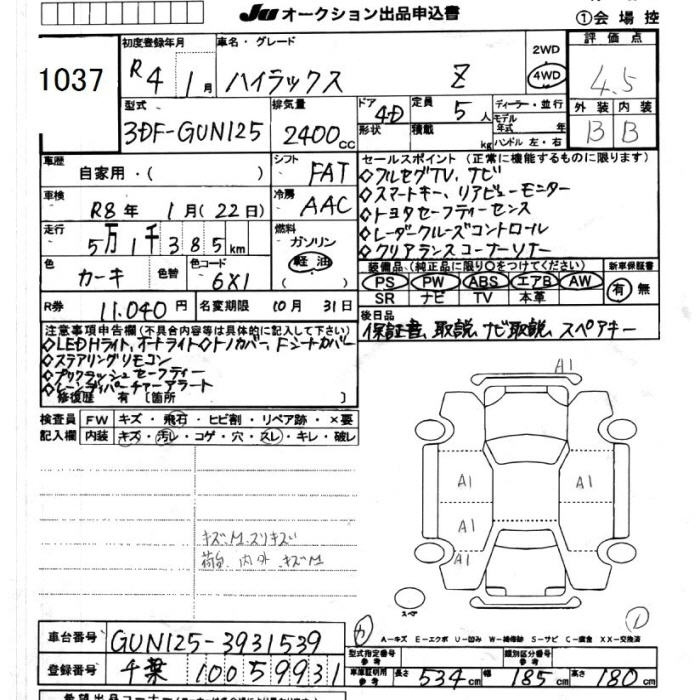 JU オークション出品申込書
①会場控
1037
初度登録年月
R4 1月
車名・グレード
ハイラックス Z
2WD
4WD
評価点
4.5
型式
3DF-GUN125
排気量
2400cc
ドア
4D
形状
定員
5人
積載
kg
ディーラー・並行
モデル年式 年
ハンドル 左・右
外装 内装
B B
車歴
自家用・( )
シフト
FAT
車検
R8年 1月(22日)
冷房
AAC
走行
5万1千385km
燃料
ガソリン
軽油
( )
色
カーキ
色替
色コード
6X1
R券 11,040円
名変期限 10月31日
セールスポイント(正常に機能するものに限ります)
◇フルセグTV、ナビ
◇スマートキー、リアビューモニター
◇トヨタセーフティーセンス
◇レーダークルーズコントロール
◇クリアランスコーナーソナー
装備品(純正品に限り○をつけてください)
PS PW ABS エアB AW
SR ナビ TV 本革
新車保証書
有 無
後日品
保証書、取説、ナビ取説、スペアキー
注意事項申告欄(不具合内容等は具体的に記入して下さい)
◇LEDHライト、オートライト◇トノカバー、Fシートカバー
◇ステアリングリモコン
◇プリクラッシュセーフティー
◇レーンディパーチャーアラート
修復歴 有 [箇所 ]
検査員記入欄
FW キズ・飛石・ヒビ割・リペア跡・×要
内装 キズ・汚レ・コゲ・穴・スレ・キレ・破レ
キズM、スリキズ
荷台、内外、キズM
A1
A1
A1
A1
スペ
A-キズ E-エクボ U-凹み W-補修跡 S-サビ C-腐食 XX-交換済
車台番号 GUN125-3931539
登録番号 千葉 100 5 9931
型式指定番号
参考
類別区分番号
参考
車庫証明用
参考
長さ 534cm 幅 185cm 高さ 180cm
希望出品コーナー